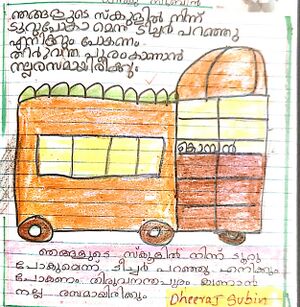 ഞങ്ങളുടെ സ്കൂളിൽ നിന്ന്
ടൂറുപോകാ മെന്ന് ടീച്ചർ പറഞ്ഞു
എനിക്കും പോകണം
തിരുവന്ത പുരംകാണാൻ
നല്ലരസമായിരിക്കും
കൊമ്പൻ
ഞങ്ങളുടെ സ്കൂളിൽ നിന്ന് ടൂറു
പോകുമെന്ന് ടീച്ചർ പറഞ്ഞു എനിക്കും
പോകണം തിരുവനന്തപുരം കാണാൻ
നല്ല രസമായിരിക്കും
Dheeraj Subin